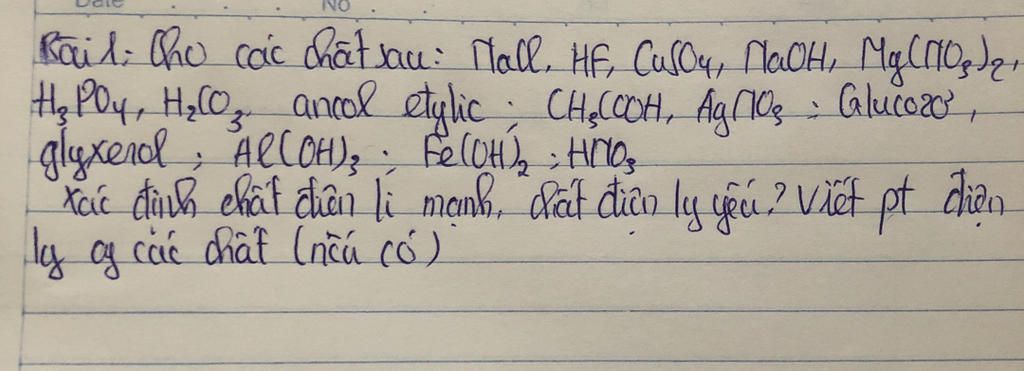 Date No
Bài 1: Cho các chất sau: NaCl, HF, CuSO4, NaOH, Mg(NO3)2,
H3PO4, H2CO3 ancol etylic; CH3COOH, AgNO3; Glucozơ,
glyxerol; Al(OH)3; Fe(OH)2; HNO3
Xác định chất điện li mạnh, chất điện ly yếu? Viết pt điện
ly các chất (nếu có)